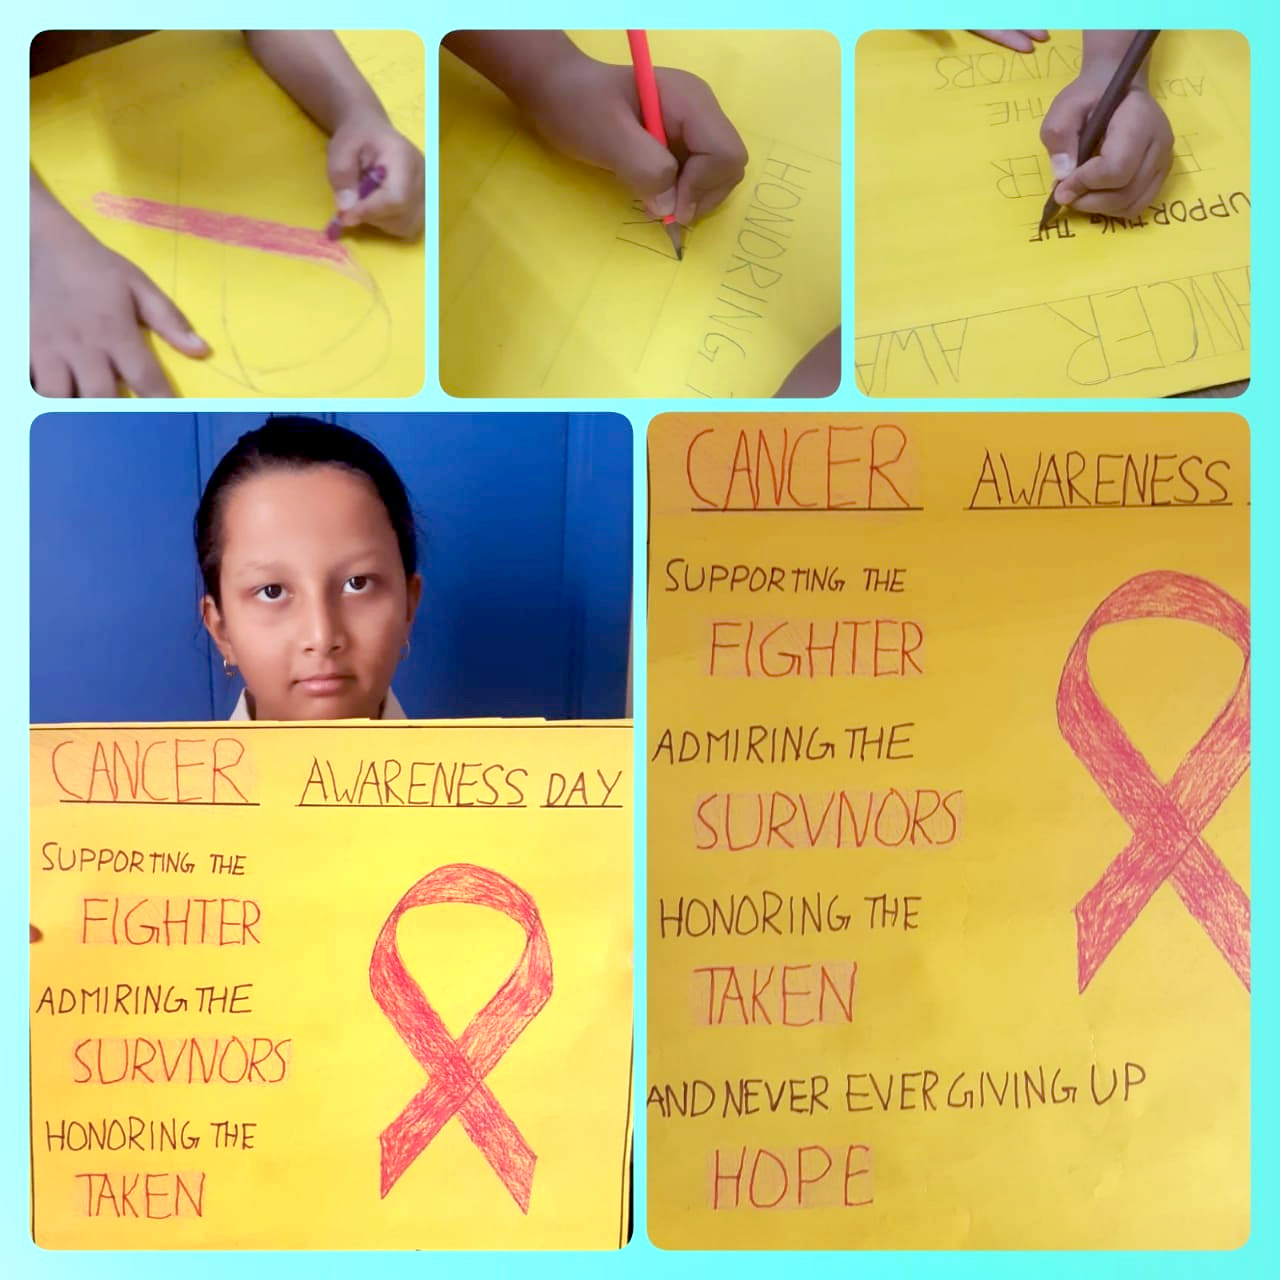 HONORING T
RVIVORS
THE
SUPPORTING THE
ANCER AWA
CANCER AWARENESS DAY
SUPPORTING THE
FIGHTER
ADMIRING THE
SURVIVORS
HONORING THE
TAKEN
CANCER AWARENESS
SUPPORTING THE
FIGHTER
ADMIRING THE
SURVIVORS
HONORING THE
TAKEN
AND NEVER EVER GIVING UP
HOPE